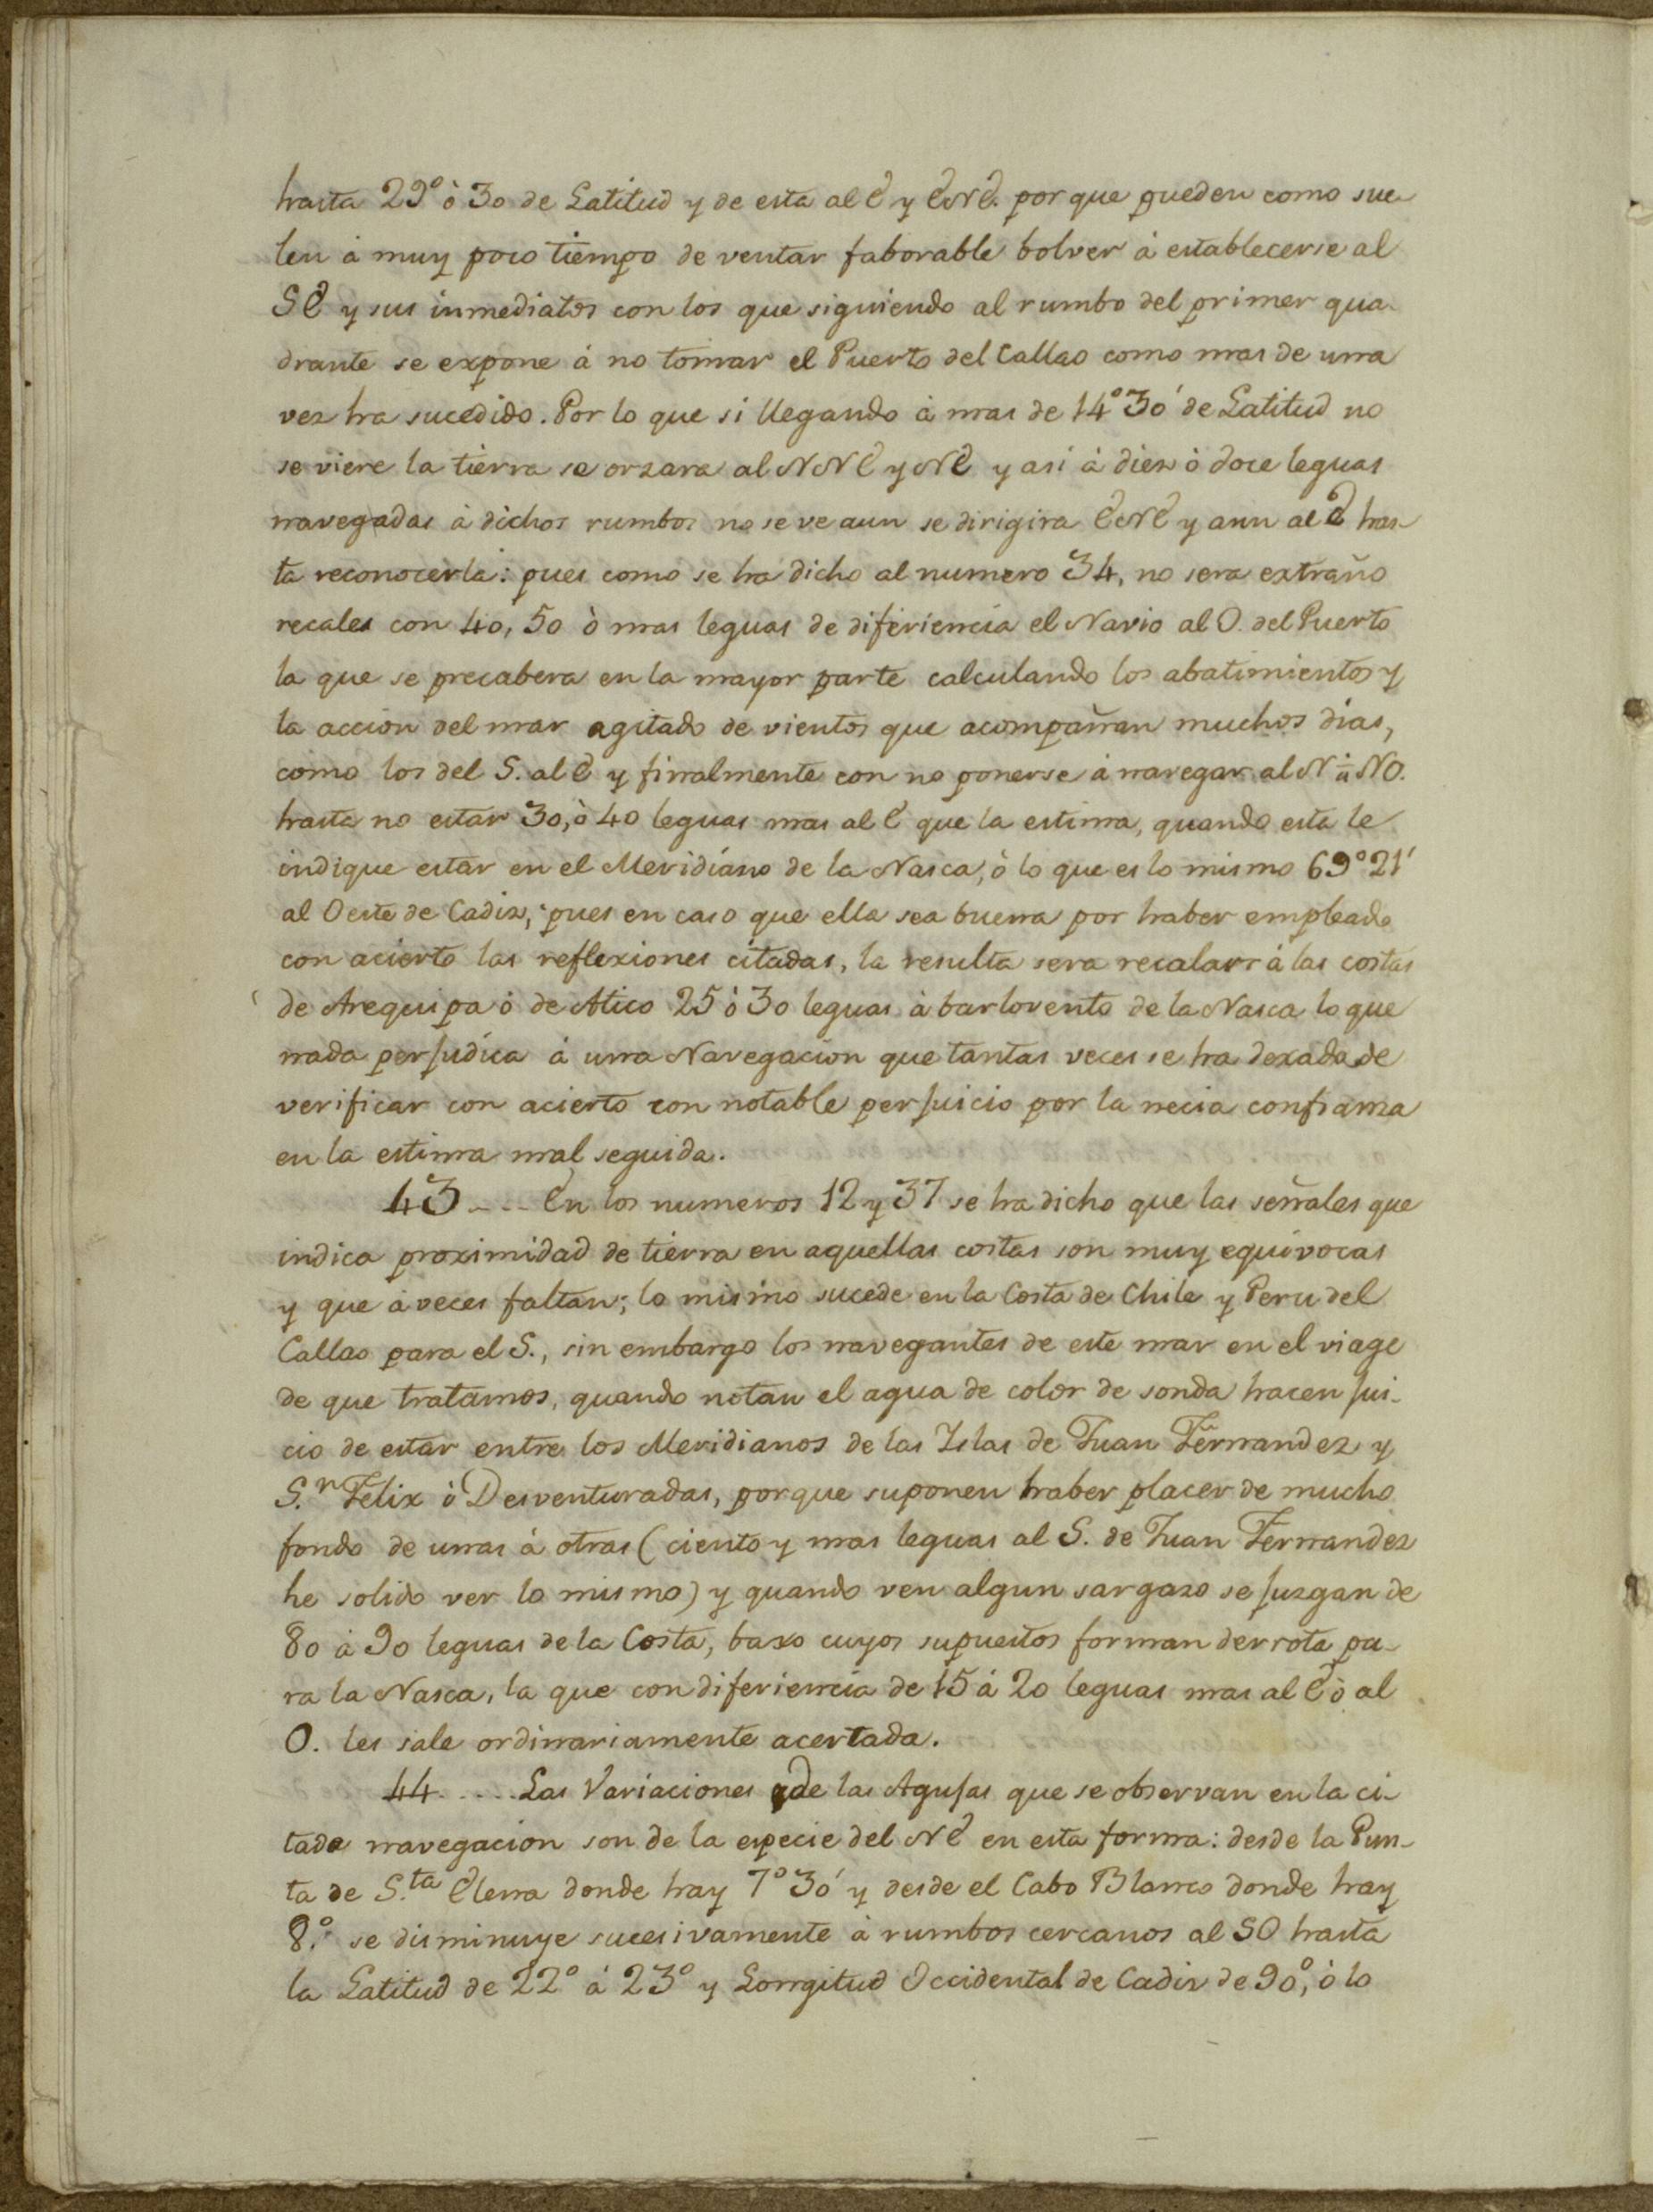 hasta 29° ò 30 de Latitud y de esta al E y ENE. por que pueden como sue-
len à muy poco tiempo de ventar faborable bolver à establecerse al
SE y sus inmediatos con los que siguiendo al rumbo del primer qua-
drante se expone à no tomar el Puerto del Callao como mas de una
vez ha sucedido. Por lo que si llegando à mas de 14°30' de Latitud no
se viere la tierra se orzara al NNE y NE y asi à diez ò doce leguas
navegadas à dichos rumbos no se ve aun se dirigira ENE y aun al E has-
ta reconocerla: pues como se ha dicho al numero 34, no sera extraño
recales con 40, 50 ò mas leguas de diferiencia el Navio al O. del Puerto
la que se precabera en la mayor parte calculando los abatimientos y
la accion del mar agitado de vientos que acompañan muchos dias,
como los del S. al E y finalmente con no ponerse à navegar al N ù NO.
hasta no estar 30, ò 40 leguas mas al E que la estima, quando esta le
indique estar en el Meridiano de la Nasca, ò lo que es lo mismo 69°21'
al Oeste de Cadiz; pues en caso que ella sea buena por haber empleado
con acierto las reflexiones citadas, la resulta sera recalar à las costas
de Arequipa ò de Atico 25 ò 30 leguas à barlovento de la Nasca lo que
nada perjudica à una Navegacion que tantas veces se ha dexado de
verificar con acierto con notable perjuicio por la necia confianza
en la estima mal seguida.
43 .... En los numeros 12 y 37 se ha dicho que las señales que
indica proximidad de tierra en aquellas costas son muy equivocas
y que à veces faltan; lo mismo sucede en la Costa de Chile y Peru del
Callao para el S., sin embargo los navegantes de este mar en el viage
de que tratamos, quando notan el agua de color de sonda hacen jui-
cio de estar entre los Meridianos de las Islas de Juan Fernandez y
S.n Felix ò Desventuradas, porque suponen haber placer de mucho
fondo de unas à otras (ciento y mas leguas al S. de Juan Fernandez
he solido ver lo mismo) y quando ven algun sargazo se juzgan de
80 à 90 leguas de la Costa, baxo cuyos supuestos forman derrota pa-
ra la Nasca, la que con diferiencia de 15 à 20 leguas mas al E ò al
O. les sale ordinariamente acertada.
44 ..... Las Variaciones de las Agujas que se observan en la ci-
tada navegacion son de la especie del NE en esta forma: desde la Pun-
ta de S.ta Elena donde hay 7°30' y desde el Cabo Blanco donde hay
8.° se disminuye sucesivamente à rumbos cercanos al SO hasta
la Latitud de 22° à 23° y Longitud Occidental de Cadiz de 90°, ò lo